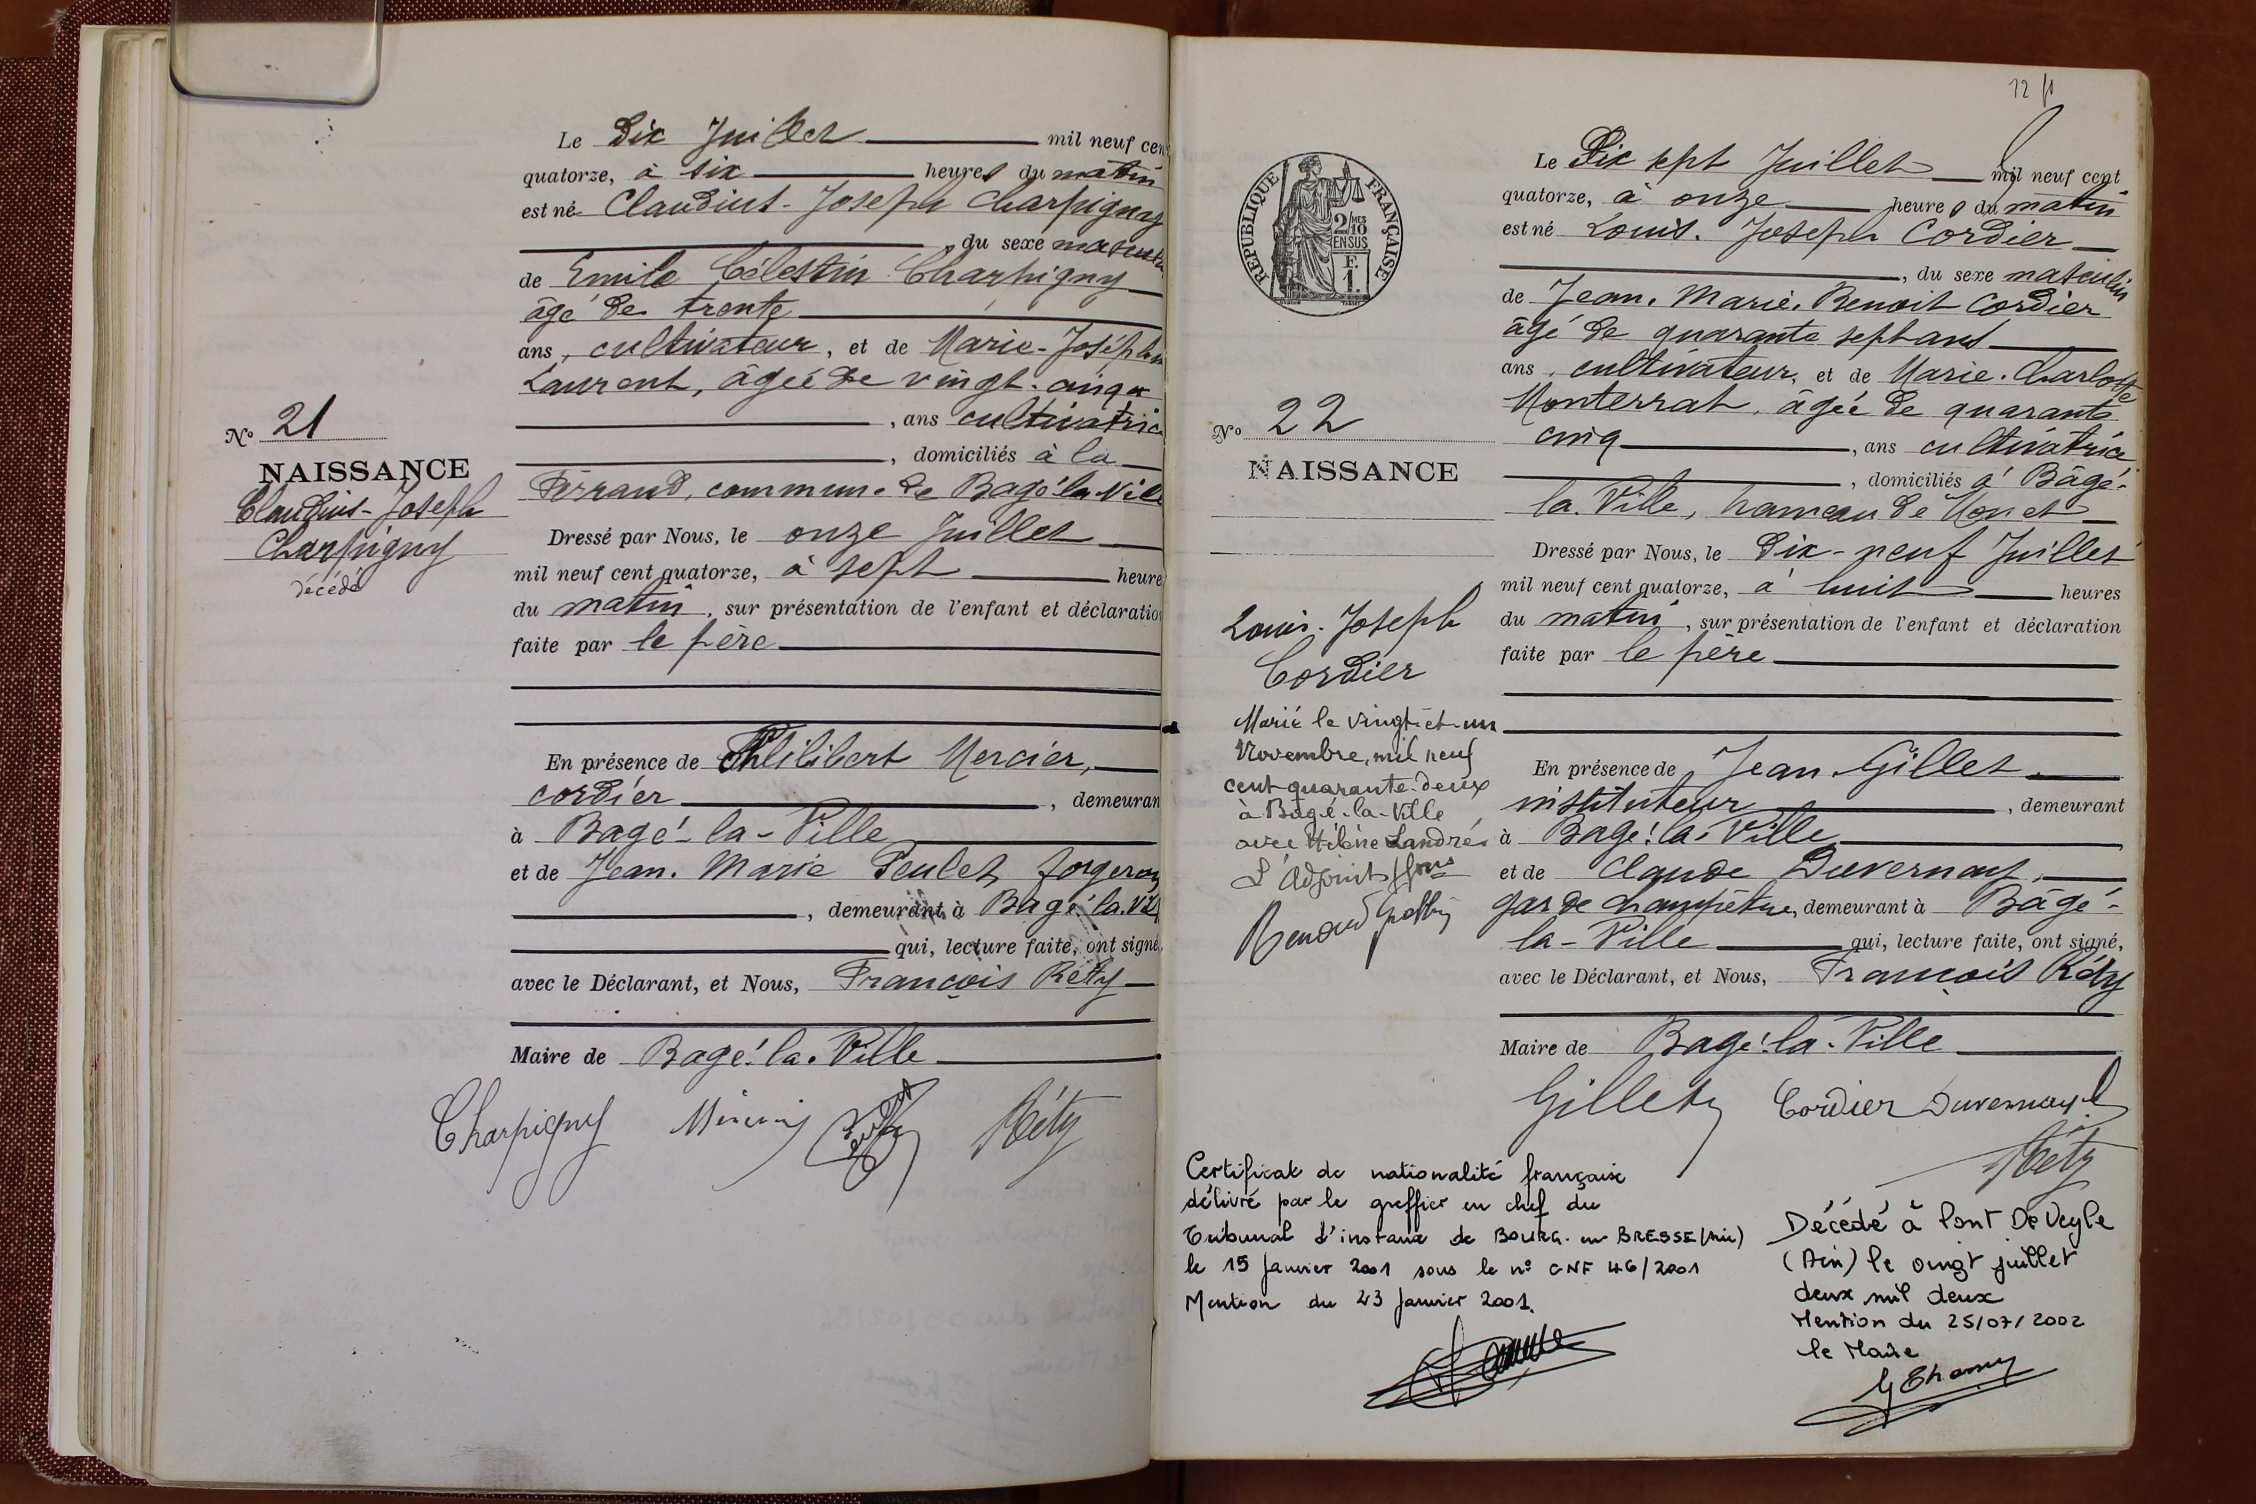 Le Dix Juillet mil neuf cen
quatorze, à six heures du matin
est né Claudius-Joseph Charpigny
, du sexe masculin
de Emile Célestin Charpigny
âgé de trente
ans, cultivateur, et de Marie-Joséphin
Laurent, âgée de vingt-cinq
, ans cultivatrice
, domiciliés à la
Ferrand, commune de Bagé-la-Ville
Dressé par Nous, le onze Juillet
mil neuf cent quatorze, à sept heure
du matin, sur présentation de l'enfant et déclaration
faite par le père
En présence de Philibert Mercier,
cordier, demeuran
à Bagé-la-Ville
et de Jean-Marie Peulet, forgeron
, demeurant à Bagé-la-Vil
qui, lecture faite, ont signé,
avec le Déclarant, et Nous, François Réty
Maire de Bagé-la-Ville
Charpigny Réty
No 21
NAISSANCE
Claudius-Joseph
Charpigny
décédé
12
Le Dix sept Juillet mil neuf cent
quatorze, à onze heures du matin
est né Louis-Joseph Cordier
, du sexe masculin
de Jean-Marie-Benoit Cordier
âgé de quarante sept ans
ans, cultivateur, et de Marie-Charlotte
Monterrat, âgée de quarante
cinq, ans cultivatrice
, domiciliés à Bâgé-
la-Ville, hameau de Monet
Dressé par Nous, le Dix-neuf Juillet
mil neuf cent quatorze, à huit heures
du matin, sur présentation de l'enfant et déclaration
faite par le père
En présence de Jean Gillet
instituteur, demeurant
à Bagé-la-Ville
et de Claude Duvernay,
garde champêtre, demeurant à Bâgé-
la-Ville qui, lecture faite, ont signé,
avec le Déclarant, et Nous, François Réty
Maire de Bagé-la-Ville
Gillet Cordier Duvernay
Réty
RÉPUBLIQUE FRANÇAISE
2/10 MES
EN SUS
F.
1.
No 22
NAISSANCE
Louis-Joseph
Cordier
Marié le vingt-et-un
Novembre, mil neuf
cent-quarante-deux
à Bâgé-la-Ville
avec Hélène Landré
L'Adjoint
Certificat de nationalité française
délivré par le greffier en chef du
Tribunal d'instance de BOURG-en-BRESSE (Ain)
le 15 Janvier 2001 sous le n° CNF 46/2001
Mention du 23 Janvier 2001.
Décédé à Pont De Veyle
(Ain) le vingt juillet
deux mil deux
Mention du 25/07/2002
le Maire